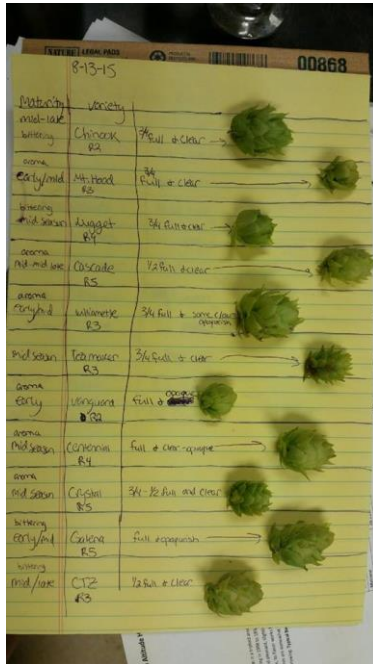 NATURE LEGAL PADS
00868
8-13-15
Maturity variety
mid-late
bittering Chinook 3/4 full & clear
R2
aroma
early/mid Mt. Hood 3/4 full & clear
R3
bittering
mid season Nugget 3/4 full & clear
R4
aroma
mid-mid late Cascade 1/2 full & clear
R5
aroma
early/mid Willamette 3/4 full & some clear/
R3 opaquish
mid season Teamaker 3/4 full & clear
R3
aroma
early Vanguard full & opaque
R2
aroma
mid season Centennial full & clear-opaque
R4
aroma
mid season Crystal 3/4-1/2 full and clear
R5
bittering
early/mid Galena full & opaquish
R5
bittering
mid/late CTZ 1/2 full & clear
R3